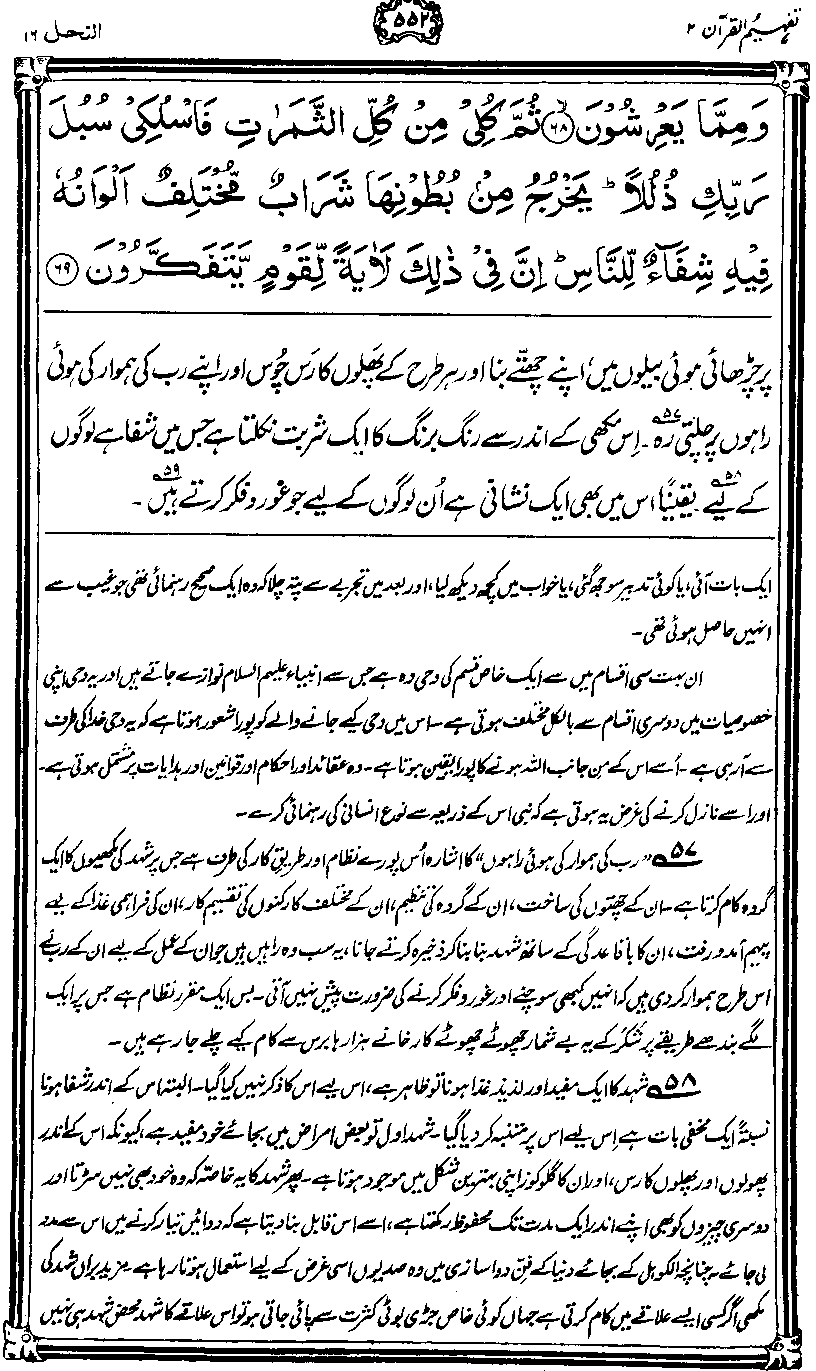 تفہیم القرآن ۲
۵۵۲
النحل ۱۶
وَمِمَّا يَعْرِشُوْنَ ﴿۶۸﴾ ثُمَّ كُلِيْ مِنْ كُلِّ الثَّمَرٰتِ فَاسْلُكِيْ سُبُلَ
رَبِّكِ ذُلُلًا ؕ يَخْرُجُ مِنْۢ بُطُوْنِهَا شَرَابٌ مُّخْتَلِفٌ اَلْوَانُهٗ
فِيْهِ شِفَآءٌ لِّلنَّاسِ ؕ اِنَّ فِيْ ذٰلِكَ لَاٰيَةً لِّقَوْمٍ يَّتَفَكَّرُوْنَ ﴿۶۹﴾
پر چڑھائی ہوئی بیلوں میں، اپنے چھتّے بنا اور ہر طرح کے پھلوں کا رَس چُوس اور اپنے رب کی ہموار کی ہوئی
راہوں پر چلتی رہ ۵۷۔ اِس مکھی کے اندر سے رنگ برنگ کا ایک شربت نکلتا ہے جس میں شفا ہے لوگوں
کے لیے ۵۸۔ یقینًا اس میں بھی ایک نشانی ہے اُن لوگوں کے لیے جو غور و فکر کرتے ہیں ۵۹۔
ایک بات آئی، یا کوئی تدبیر سوجھ گئی، یا خواب میں کچھ دیکھ لیا، اور بعد میں تجربے سے پتہ چلا کہ وہ ایک صحیح رہنمائی تھی جو غیب سے
انہیں حاصل ہوئی تھی۔
ان بہت سی اقسام میں سے ایک خاص قسم کی وحی وہ ہے جس سے انبیاء علیہم السلام نوازے جاتے ہیں اور یہ وحی اپنی
خصوصیات میں دوسری اقسام سے بالکل مختلف ہوتی ہے۔ اس میں وحی کیے جانے والے کو پورا شعور ہوتا ہے کہ یہ وحی خدا کی طرف
سے آرہی ہے۔ اُسے اس کے من جانب اللہ ہونے کا پورا یقین ہوتا ہے۔ وہ عقائد اور احکام اور قوانین اور ہدایات پر مشتمل ہوتی ہے۔
اور اسے نازل کرنے کی غرض یہ ہوتی ہے کہ نبی اس کے ذریعہ سے نوع انسانی کی رہنمائی کرے۔
۵۷ "رب کی ہموار کی ہوئی راہوں" کا اشارہ اُس پورے نظام اور طریق کار کی طرف ہے جس پر شہد کی مکھیوں کا ایک
گروہ کام کرتا ہے۔ ان کے چھتوں کی ساخت، ان کے گروہ کی تنظیم، ان کے مختلف کارکنوں کی تقسیم کار، ان کی فراہمی غذا کے لیے
پیہم آمدورفت، ان کا باقاعدگی کے ساتھ شہد بنا بنا کر ذخیرہ کرتے جانا، یہ سب وہ راہیں ہیں جو ان کے عمل کے لیے ان کے رب نے
اس طرح ہموار کر دی ہیں کہ انہیں کبھی سوچنے اور غور و فکر کرنے کی ضرورت پیش نہیں آتی۔ بس ایک مقرر نظام ہے جس پر ایک
لگے بندھے طریقے پر شکر کے یہ بے شمار چھوٹے چھوٹے کارخانے ہزارہا برس سے کام کیے چلے جا رہے ہیں۔
۵۸ شہد کا ایک مفید اور لذیذ غذا ہونا تو ظاہر ہے، اس لیے اس کا ذکر نہیں کیا گیا۔ البتہ اس کے اندر شفا ہونا
نسبتہً ایک مخفی بات ہے اِس لیے اس پر متنبہ کر دیا گیا۔ شہد اول تو بعض امراض میں بجائے خود مفید ہے، کیونکہ اس کے اندر
پھولوں اور پھلوں کا رس، اور ان کا گلوکوز اپنی بہترین شکل میں موجود ہوتا ہے۔ پھر شہد کا یہ خاصّہ کہ وہ خود بھی نہیں سڑتا اور
دوسری چیزوں کو بھی اپنے اندر ایک مدت تک محفوظ رکھتا ہے، اسے اس قابل بنا دیتا ہے کہ دوائیں تیار کرنے میں اس سے مدد
لی جائے۔ چنانچہ الکوہل کے بجائے دنیا کے فن دوا سازی میں وہ صدیوں اسی غرض کے لیے استعمال ہوتا رہا ہے۔ مزید براں شہد کی
مکھی اگر کسی ایسے علاقے میں کام کرتی ہے جہاں کوئی خاص جڑی بوٹی کثرت سے پائی جاتی ہو تو اس علاقے کا شہد محض شہد ہی نہیں